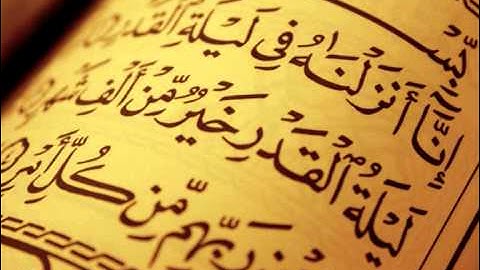 بِسْ
إِنَّا أَنزَلْنَٰهُ فِي لَيْلَةِ الْقَدْرِ
لَيْلَةُ الْقَدْرِ خَيْرٌ مِّنْ أَلْفِ شَهْرٍ
رَبِّهِم مِّن كُلِّ أَمْرٍ